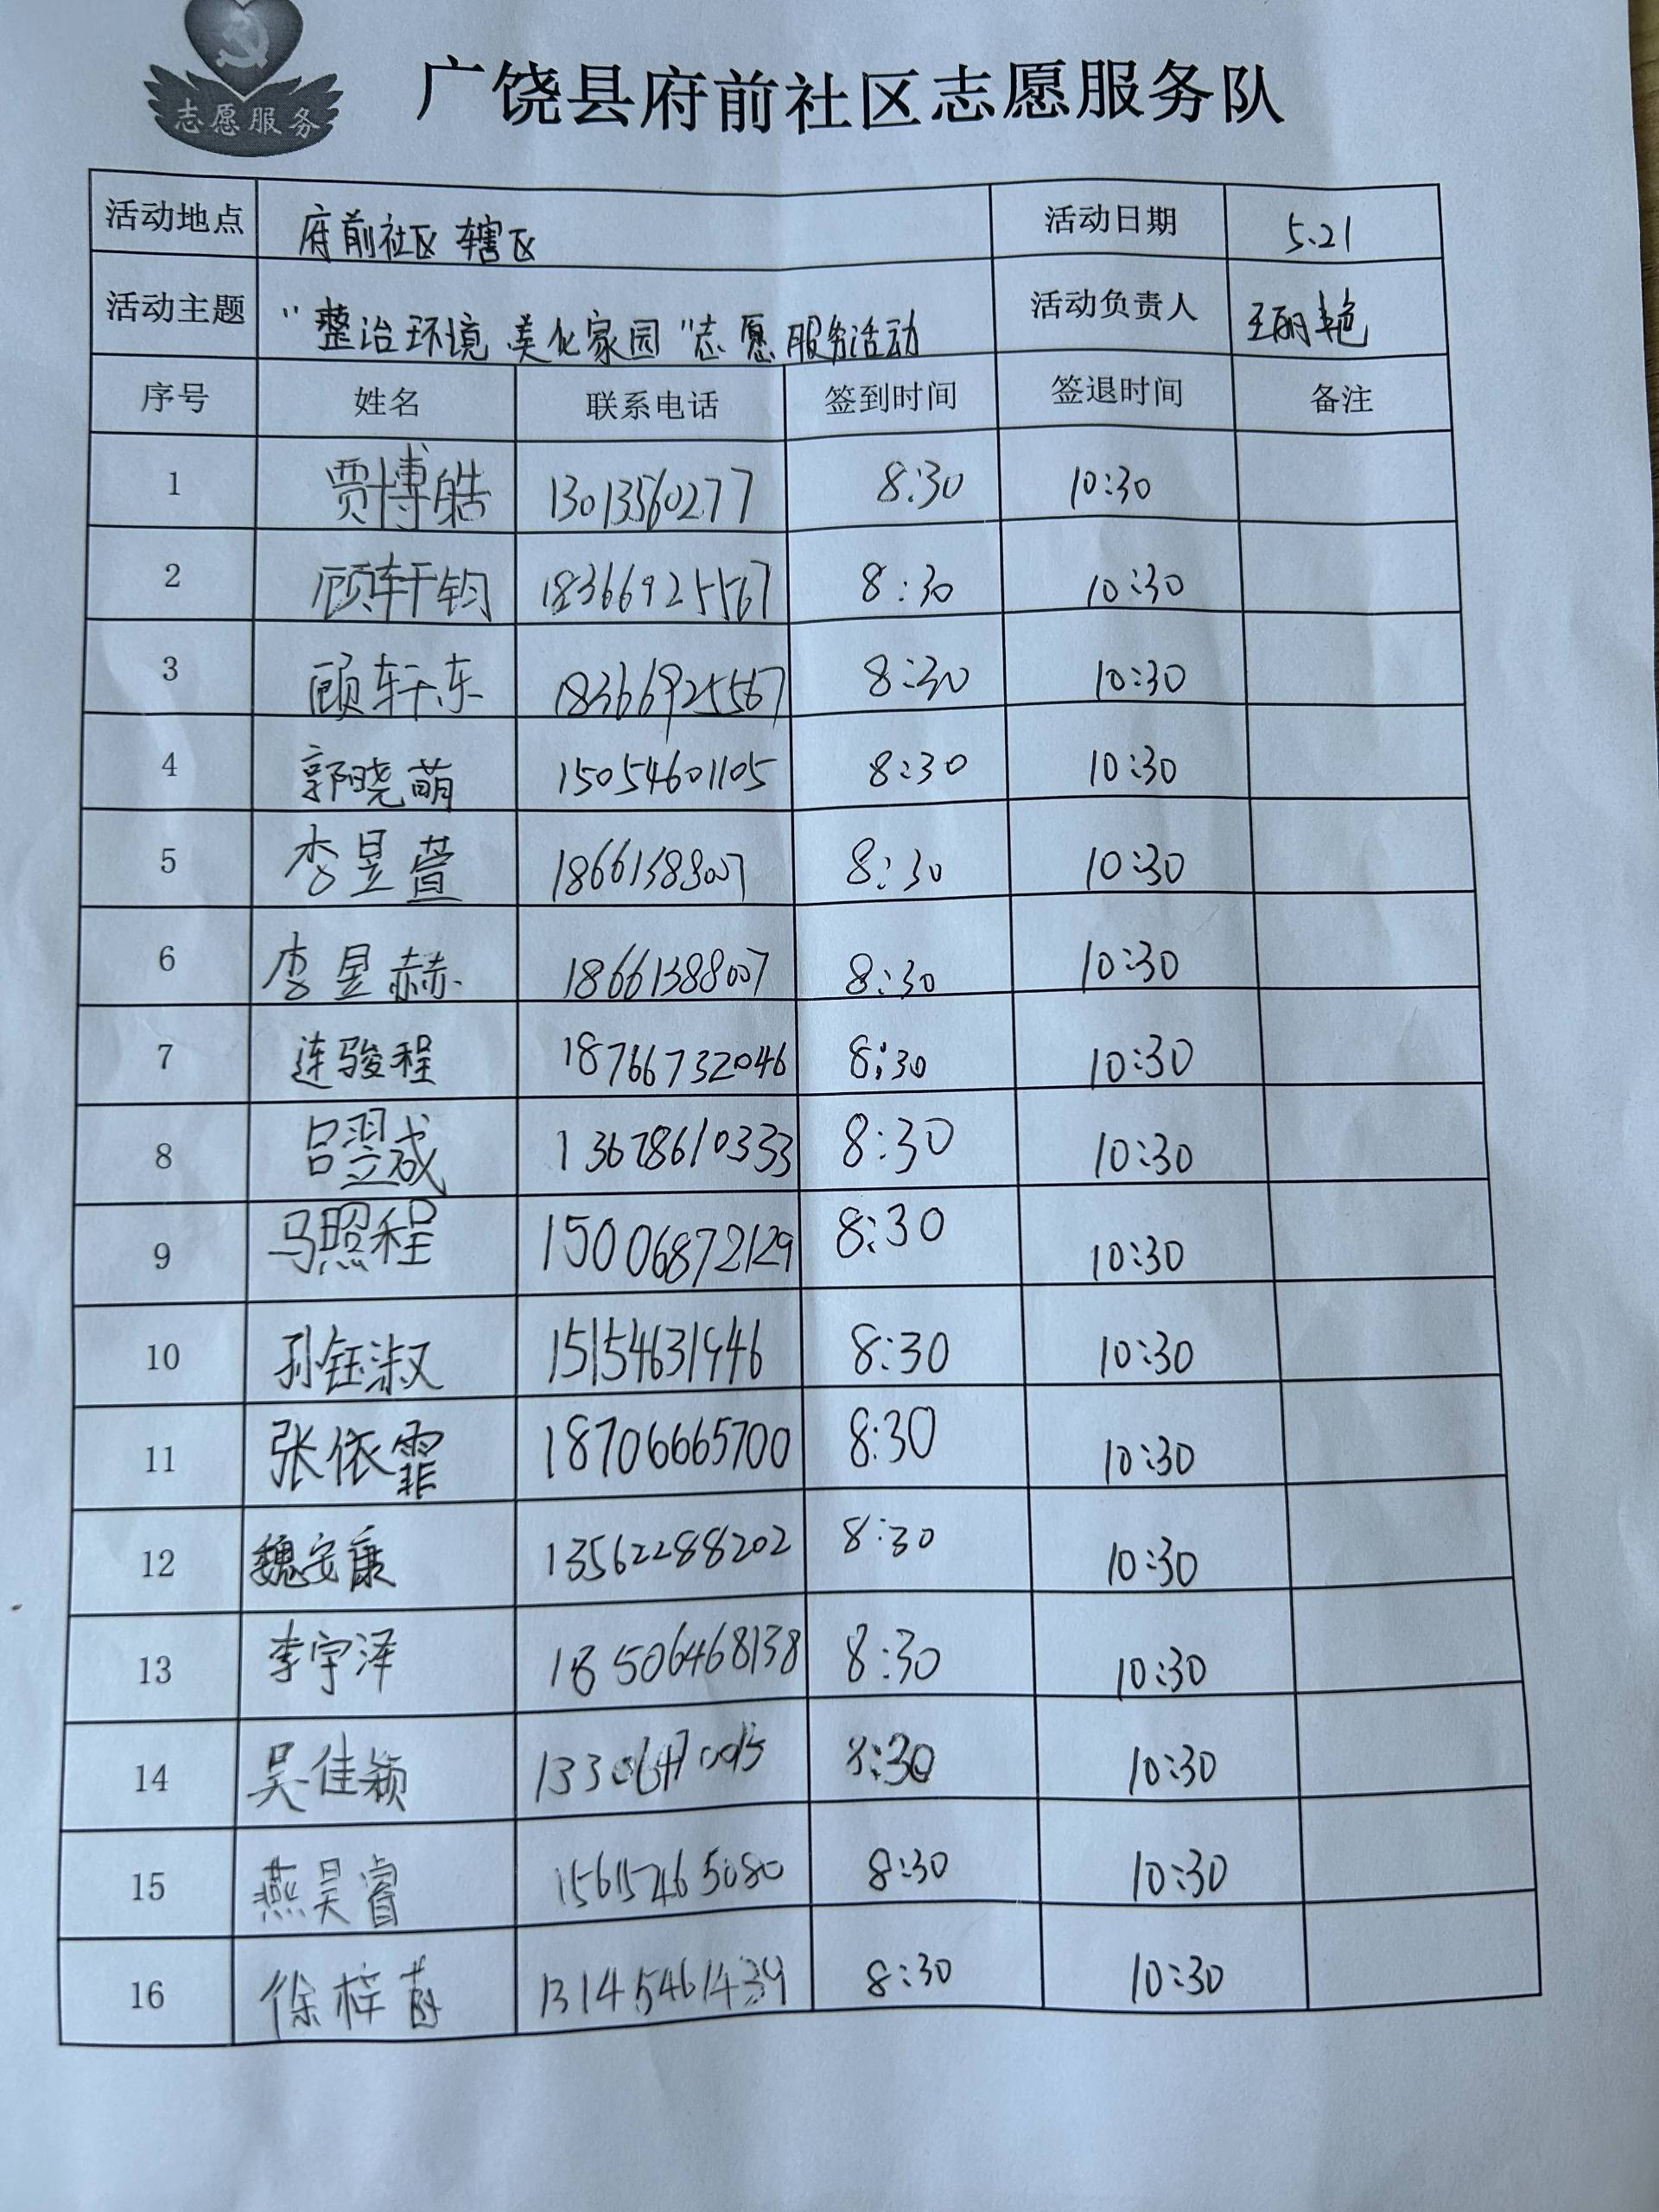 志愿服务
广饶县府前社区志愿服务队
活动地点 府前社区辖区 活动日期 5.21
活动主题 "整治环境 美化家园"志愿服务活动 活动负责人 王丽艳
序号 姓名 联系电话 签到时间 签退时间 备注
1 贾博皓 13013560277 8:30 10:30
2 顾轩钧 18366925567 8:30 10:30
3 顾轩东 18366925567 8:30 10:30
4 郭晓萌 15054601105 8:30 10:30
5 李昱萱 18661388007 8:30 10:30
6 李昱赫 18661388007 8:30 10:30
7 连骏程 18766732046 8:30 10:30
8 吕翌成 13678610333 8:30 10:30
9 马照程 15006872129 8:30 10:30
10 孙钰淑 15154631946 8:30 10:30
11 张依霏 18706665700 8:30 10:30
12 魏安康 13562288202 8:30 10:30
13 李宇泽 18506468138 8:30 10:30
14 吴佳颖 8:30 10:30
15 燕昊睿 8:30 10:30
16 徐梓 8:30 10:30